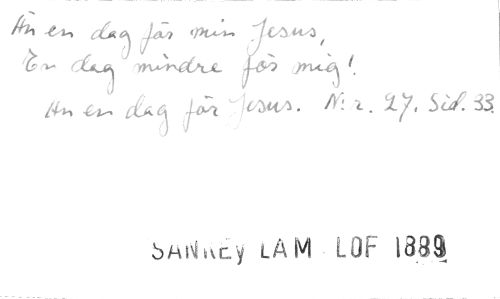 Än en dag för min Jesus,
En dag mindre för mig!
Än en dag för Jesus. N:r. 27. Sid. 33.
SANKEY LAM LOF 1889